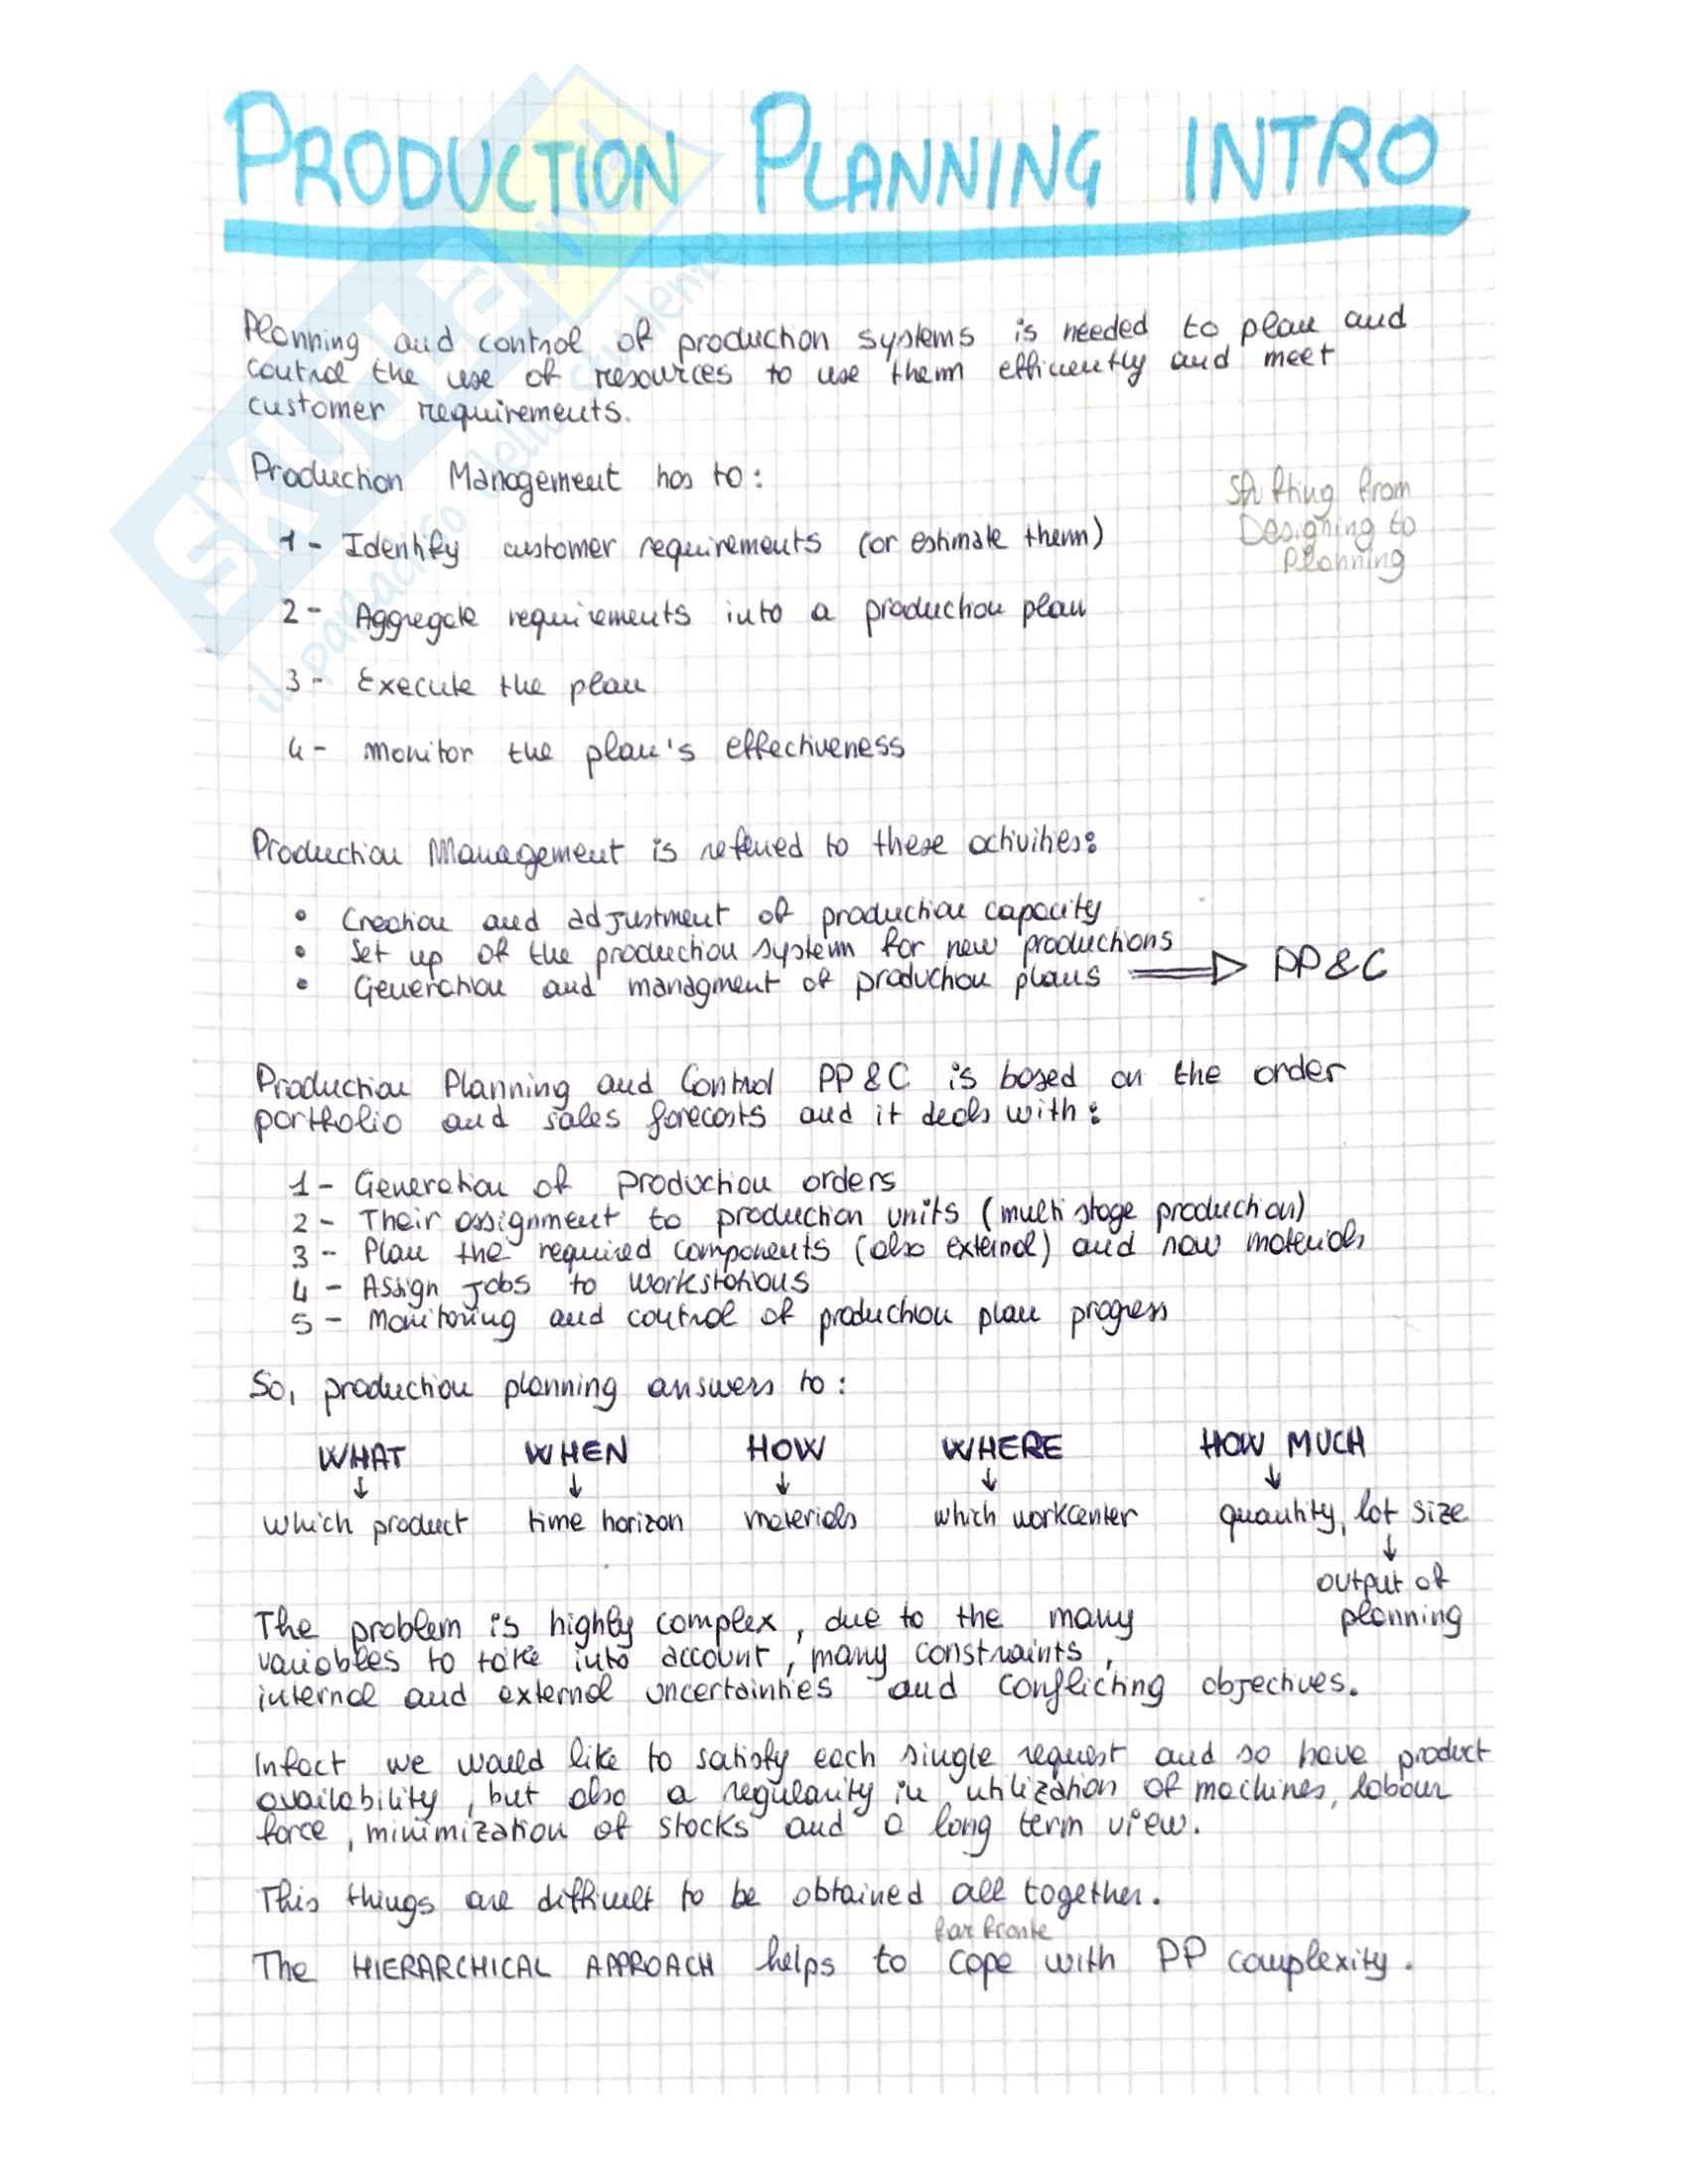 PRODUCTION PLANNING INTRO
Planning and control of production systems is needed to plan and
control the use of resources to use them efficiently and meet
customer requirements.
Production Management has to:
Shifting from
Designing to
Planning
1 - Identify customer requirements (or estimate them)
2 - Aggregate requirements into a production plan
3 - Execute the plan
4 - Monitor the plan's effectiveness
Production Management is referred to these activities:
• Creation and adjustment of production capacity
• Set up of the production system for new productions
• Generation and managment of production plans ⟹ PP&C
Production Planning and Control PP&C is based on the order
portfolio and sales forecasts and it deals with:
1 - Generation of production orders
2 - Their assignment to production units (multi stage production)
3 - Plan the required components (also external) and raw materials
4 - Assign jobs to workstations
5 - Monitoring and control of production plan progress
So, production planning answers to:
WHAT WHEN HOW WHERE HOW MUCH
↓ ↓ ↓ ↓ ↓
which product time horizon materials which workcenter quantity, lot size
↓
output of
planning
The problem is highly complex, due to the many
variables to take into account, many constraints,
internal and external uncertainties and conflicting objectives.
Infact we would like to satisfy each single request and so have product
availability, but also a regularity in utilization of machines, labour
force, minimization of stocks and a long term view.
This things are difficult to be obtained all together.
far fronte
The HIERARCHICAL APPROACH helps to cope with PP complexity.
SKUOLA
il paradiso dello studente